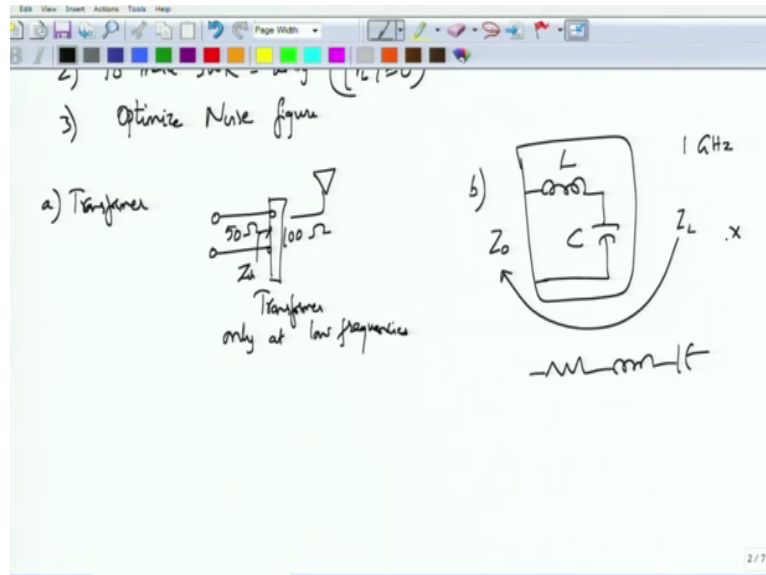 Edit View Insert Actions Tools Help
Page Width
2)
3) Optimize Noise figure
a) Transformer
50 Ω
100 Ω
Transformer
only at low frequencies
b)
L
C
Z₀
Z_L
1 GHz
.x
2/7